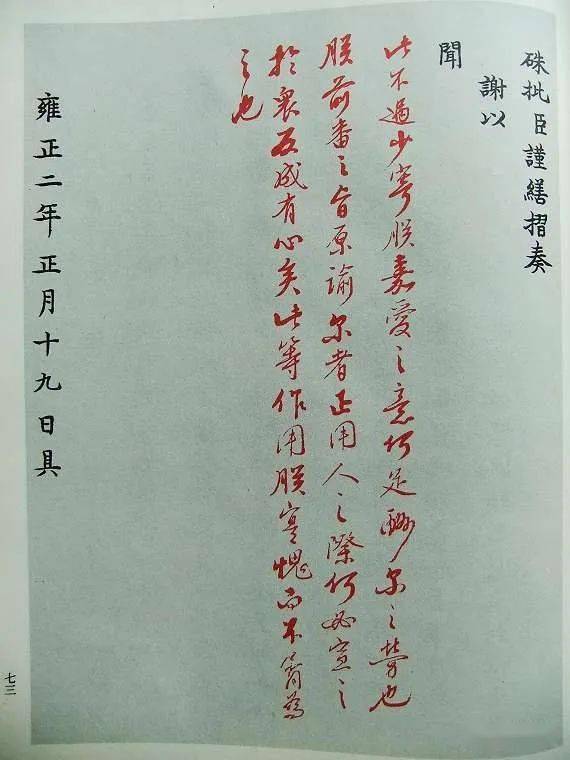 硃批臣謹繕摺奏
謝以
聞
此不過少寄朕嘉愛之意何足酬尔之勞也
朕前番之旨原諭尔者正用人之際何必宣之
於衆反成有心矣此等作用朕實愧而不肯為
之也
雍正二年正月十九日具
七三